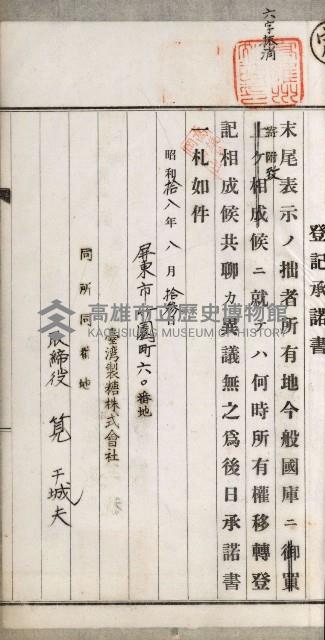 六字抹消
登記承諾書
末尾表示ノ拙者所有地今般國庫ニ御買
上ケ相成候ニ就テハ何時所有權移轉登
寄附致
記相成候共聊カ異議無之爲後日承諾書
一札如件
昭和拾八年八月拾
屏東市竹園町六〇番地
臺湾製糖株式會社
同所同番地
取締役 筧 干城夫
高雄市立歷史博物館
KAOHSIUNG MUSEUM OF HISTORY